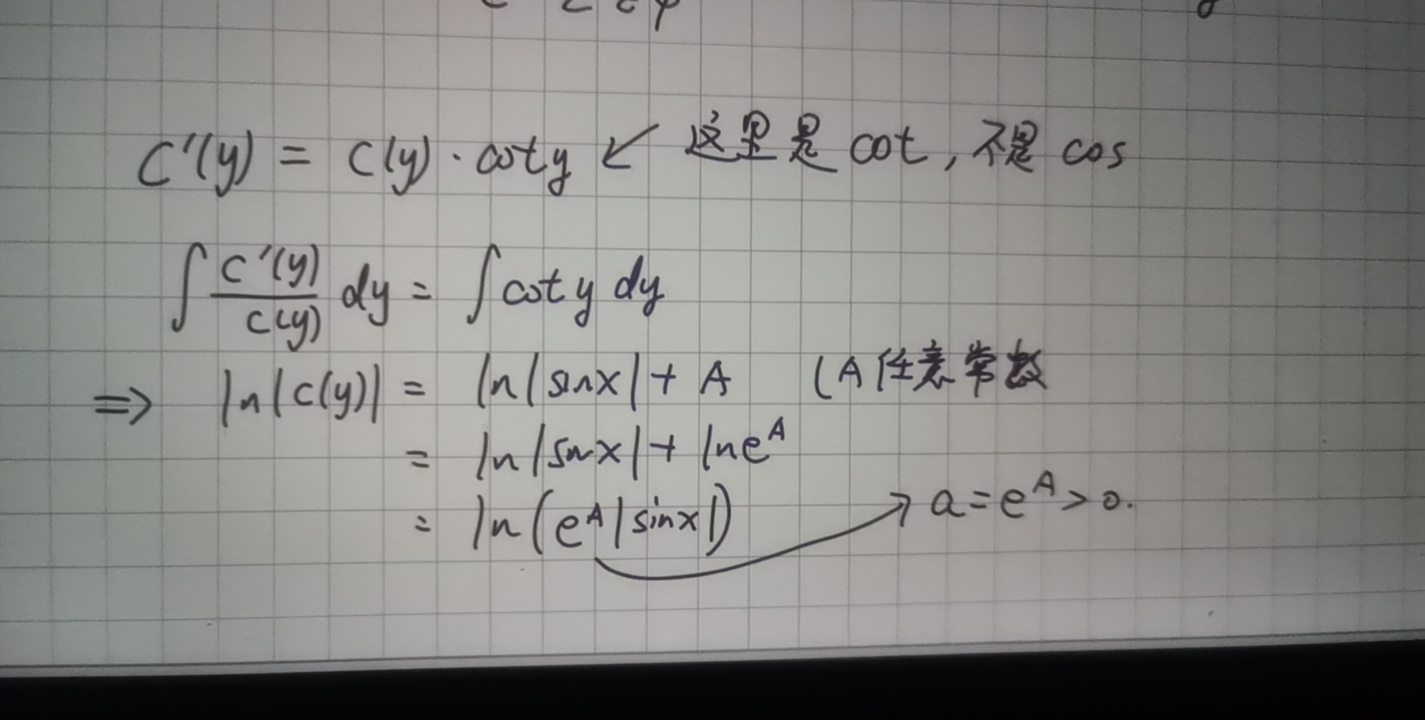 C'(y) = C(y)·cot y ↙ 这里是 cot, 不是 cos
∫ C'(y)/C(y) dy = ∫ cot y dy
⇒ ln|C(y)| = ln|sinx| + A (A任意常数
= ln|sinx| + lne^A
= ln(e^A|sinx|) → a = e^A > 0.